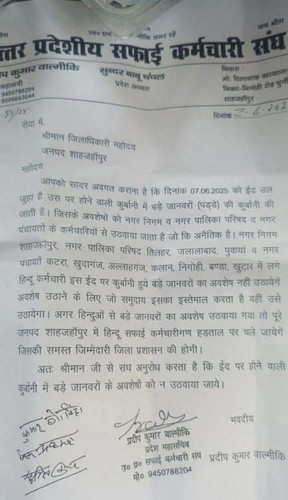 त्तर प्रदेशीय सफाई कर्मचारी संघ
दीप कुमार वाल्मीकि
सुन्दर बाबू चंचल
निवास
महामन्त्री
प्रदेश अध्यक्ष
9450788204
शाहजहाँपुर
दिनांक
सेवा में,
श्रीमान जिलाधिकारी महोदय
जनपद शाहजहाँपुर
महोदय
आपको सादर अवगत कराना है कि दिनांक 07.06.2025 को ईद उल
जुहा है उस पर होने वाली कुर्बानी में बड़े जानवरों (पड्डे) की कुर्बानी की
जाती है। जिसके अवशेषों को नगर निगम व नगर पालिका परिषद व नगर
पंचायतों के कर्मचारियों से उठवाया जाता है जो कि अनैतिक है। नगर निगम
शाहजहाँपुर, नगर पालिका परिषद तिलहर, जलालाबाद, पुवायां व नगर
पंचायतें कटरा, खुदागंज, अल्लाहगंज, कलान, निगोही, बण्डा, खुटार में लगे
हिन्दू कर्मचारी इस ईद पर कुर्बानी हुये बड़े जानवरों का अवशेष नहीं उठायेंगे
अवशेष उठाने के लिए जो समुदाय इसका इस्तेमाल करता है वहीं उसे
उठायेगा। अगर हिन्दुओं से बड़े जानवरों का अवशेष उठवाया गया तो पूरे
जनपद शाहजहाँपुर में हिन्दू सफाई कर्मचारीगण हड़ताल पर चले जायेंगें
जिसकी समस्त जिम्मेदारी जिला प्रशासन की होगी।
अतः श्रीमान जी से संघ अनुरोध करता है कि ईद पर होने वाली
कुर्बानी में बड़े जानवरों के अवशेषों को न उठवाया जाये।
भवदीय
प्रदीप कुमार वाल्मीकि
प्रदेश महासचिव
उ० प्र० सफाई कर्मचारी संघ प्रदीप कुमार वाल्मीकि
मो० 9450788204